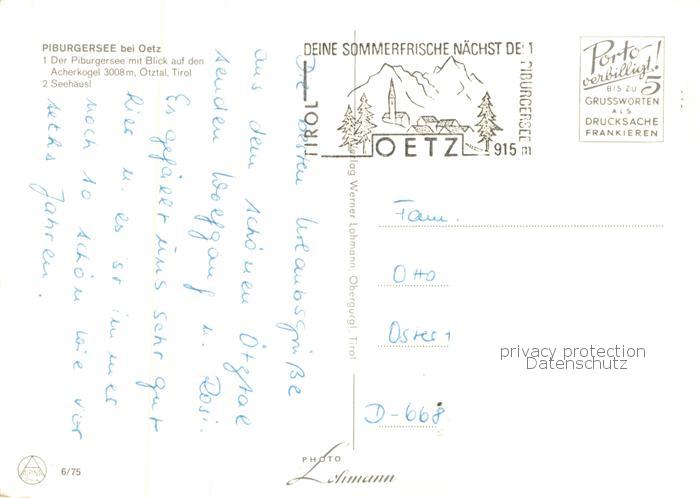 PIBURGERSEE bei Oetz
1 Der Piburgersee mit Blick auf den
Acherkogel 3008 m, Ötztal, Tirol
2 Seehäusl
Die besten Urlaubsgrüße
aus dem schönen Ötztal
senden Wolfgang u. Rosi.
Es gefällt uns sehr gut
hier u. es ist immer
noch so schön wie vor
sechs Jahren.
DEINE SOMMERFRISCHE NÄCHST DE
PIBURGERSEE
TIROL
OETZ
915 m
Porto
verbilligt!
BIS ZU 5
GRUSSWORTEN
ALS
DRUCKSACHE
FRANKIEREN
Verlag Werner Lohmann, Obergurgl, Tirol
Fam.
Otto
Oster
D-668
privacy protection
Datenschutz
ALPINA
6/75
PHOTO
Lohmann